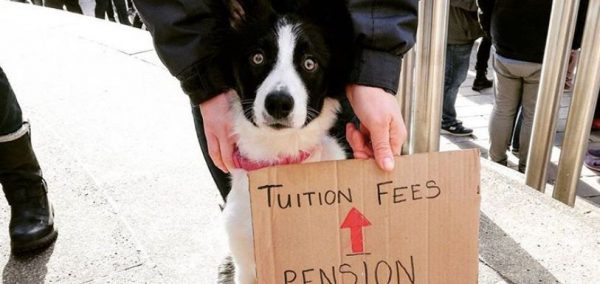 TUITION FEES
PENSION